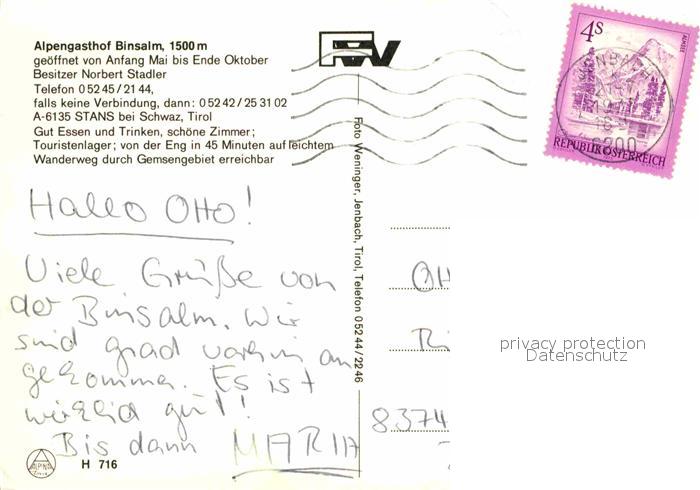 Alpengasthof Binsalm, 1500 m
geöffnet von Anfang Mai bis Ende Oktober
Besitzer Norbert Stadler
Telefon 0 52 45 / 21 44,
falls keine Verbindung, dann: 0 52 42 / 25 31 02
A-6135 STANS bei Schwaz, Tirol
Gut Essen und Trinken, schöne Zimmer;
Touristenlager; von der Eng in 45 Minuten auf leichtem
Wanderweg durch Gemsengebiet erreichbar
Hallo Otto!
Viele Grüße von
der Binsalm. Wir
sind grad vorhin an
gekommen. Es ist
wirklich gut!
Bis dann MARIA
ALPINA
H 716
Foto Weninger, Jenbach, Tirol, Telefon 0 52 44 / 22 46
4S
ALMSEE
REPUBLIK ÖSTERREICH
6200
privacy protection
Datenschutz
8374